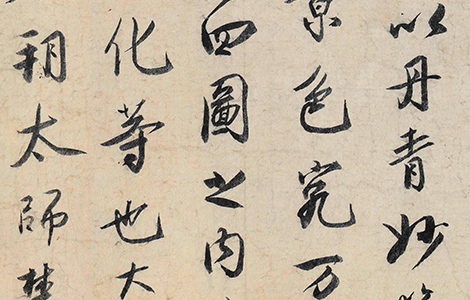 以丹青妙
景色究万
四圖之内
化等也大
太師